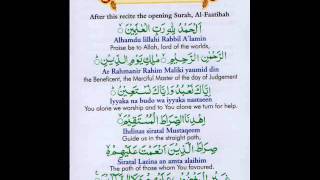 After this recite the opening Surah, Al-Faatihah
اَلْحَمْدُ لِلّٰهِ رَبِّ الْعٰلَمِيْنَ ۙ
Alhamdu lillahi Rabbil A'lamin
Praise be to Allah, lord of the worlds,
الرَّحْمٰنِ الرَّحِيْمِ ۙ مٰلِكِ يَوْمِ الدِّيْنِ ۙ
Ar Rahmanir Rahim Maliki yaumid din
the Beneficent, the Merciful Master of the day of Judgement
اِيَّاكَ نَعْبُدُ وَاِيَّاكَ نَسْتَعِيْنُ ۙ
Iyyaka na budo wa iyyaka nastaeen
You alone we worship and to You alone we turn for help.
اِهْدِنَا الصِّرَاطَ الْمُسْتَقِيْمَ ۙ
Ihdinas siratal Mustaqeem
Guide us in the straight path,
صِرَاطَ الَّذِيْنَ اَنْعَمْتَ عَلَيْهِمْ ۙ
Siratal Lazina an amta alaihim
The path of those whom You favoured.